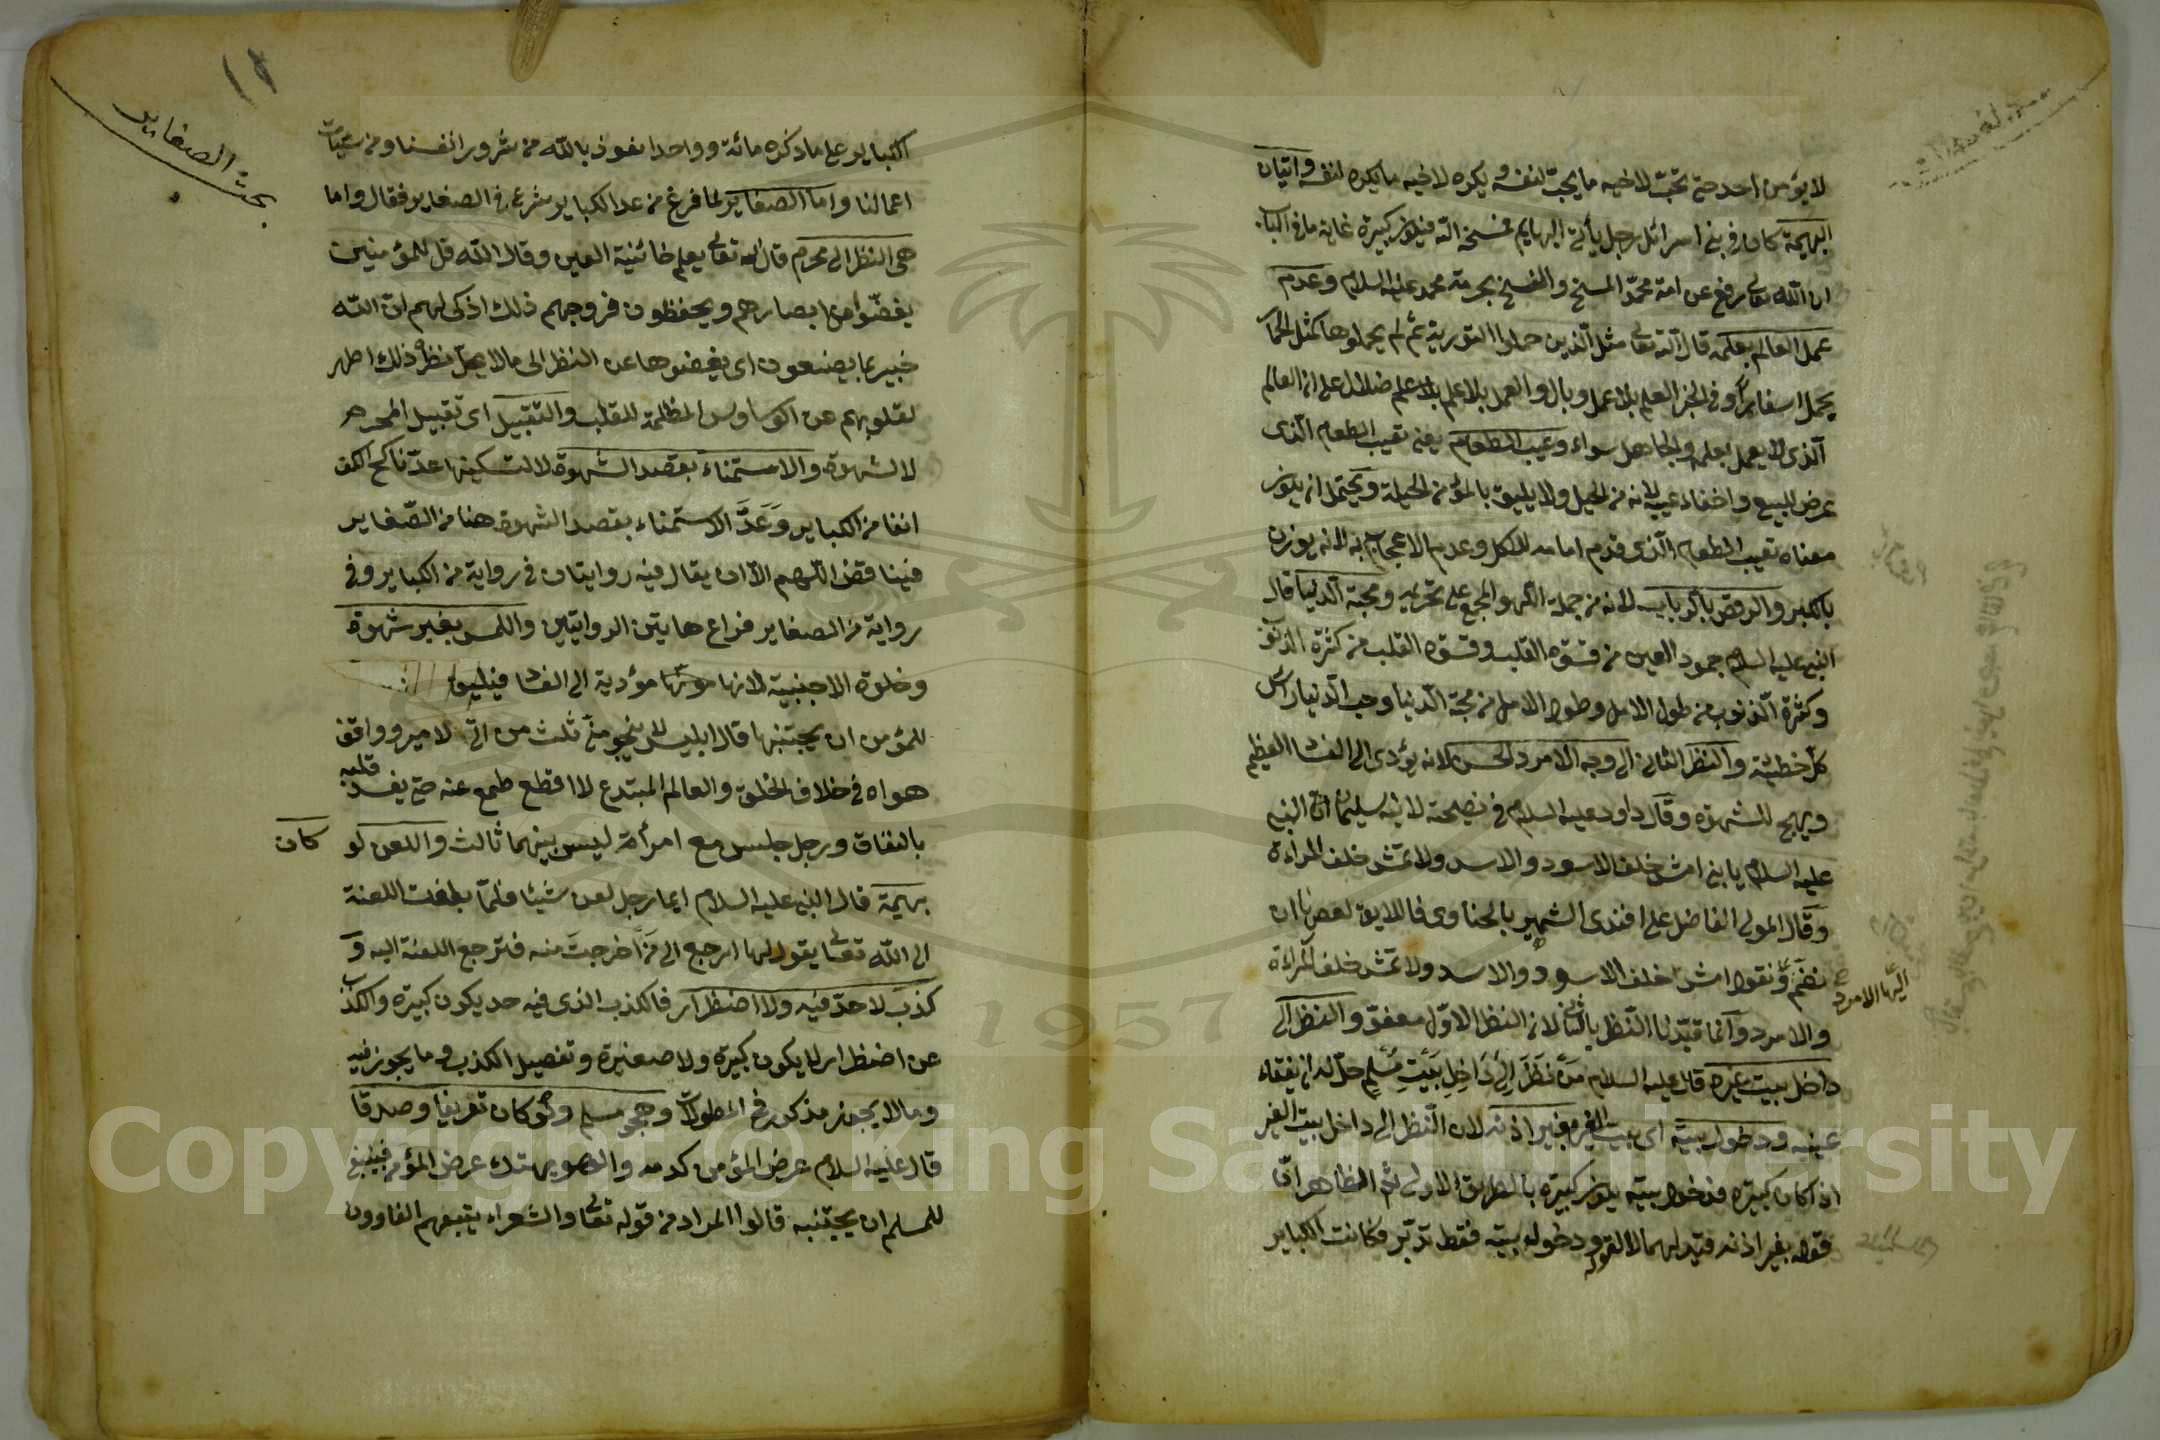 لا يؤمن احد حتى يحب لاخيه ما يحب لنفسه ويكره لاخيه ما يكره لنفسه واتيان
البهيمة كان في بنى اسرائل رجل يأتى البهايم فمسخه الله فيكون كبيرة غاية ما في الباب
ان الله تعالى رفع عن امة محمد المسخ والفسخ بحرمة محمد عليه السلام وعدم
عمل العالم بعلمه قال الله تعالى مثل الذين حملوا التورية ثم لم يحملوها كمثل الحمار
يحمل اسفارا وفى الخبر العلم بلا عمل وبال والعمل بلا علم ضلال على ان العالم
الذى لا يعمل بعلمه والجاهل سواء وعيب الطعام يعنى تعيب الطعام الذى
عرض للبيع واخفاء عيبه لانه من الحيل ولا يليق بالمؤمن الحيلة ويحتمل ان يكون
معناه تعيب الطعام الذى قدم امامه للاكل وعدم الاعجاب به لانه يوزن
بالكبر والرقص بالرباب لانه من جملة اللهو المجمع على تحريمه ومحبة الدنيا قال
النبى عليه السلام جمود العين من قسوة القلب وقسوة القلب من كثرة الذنوب
وكثرة الذنوب من طول الامل وطول الامل من محبة الدنيا وحب الدنيا رأس
كل خطيئة والنظر الثانى الى وجه الامرد الحسن لانه يؤدى الى الفساد العظيم
ويهيج للشهوة وقال داود عليه السلام في نصيحة لابنه سليمان النبى
عليه السلام يا بنى امش خلف الاسود والاسد ولا تمش خلف المراءة
وقال المولى الفاضل على افندى الشهير بالحناوى فاللايق لعصرنا ان
نضم ونقول امش خلف الاسود والاسد ولا تمش خلف المراءة
اليها الامرد
والامرد وانما قيدنا النظر بالثانى لان النظر الاول معفو والنظر الى
داخل بيت غيره قال عليه السلام من نظر الى داخل بيت مسلم حل له ان يفقاء
عينه ودخول بيته اى بيت الغير بغير اذنه لان النظر الى داخل بيت الغير
اذا كان كبيرة فدخول بيته يكون كبيرة بالطريق الاولى ثم الظاهر ان
قوله بغير اذنه قيد لهما لا لقوله ودخول بيته فقط تدبر وكانت الكباير
١٢
بحث الصغاير
الكباير على ما ذكره مائة وواحدا نعوذ بالله من شرور انفسنا ومن سيئات
اعمالنا واما الصغاير لما فرغ من عد الكباير شرع في الصغاير فقال واما
هى النظر الى محرم قال الله تعالى يعلم خائنة العين وقال الله قل للمؤمنين
يغضوا من ابصارهم ويحفظون فروجهم ذلك اذكى لهم ان الله
خبير بما يصنعون اى يغضوها عن النظر الى ما لا يحل نظره ذلك اطهر
لقلوبهم عن الوساوس المظلمة للقلب والتقبيل اى تقبيل المحرم
لا لشهوة والاستمناء بقصد الشهوة لا لتسكينها عد ناكح الكف
انفا من الكباير وعد الاستمناء بقصد الشهوة هنا من الصغاير
فيناقض اللهم الا ان يقال فيه روايتان في رواية من الكباير وفى
رواية من الصغاير فراع هايتين الروايتين واللمس بغير شهوة
وخلوة الاجنبية لانها مؤدية الى الفساد فيليق
للمؤمن ان يجتنبها قال ابليس لا ينجو منى ثلث من اتى لامير ووافق
هواه في خلاف الخلق والعالم المبتدع لا اقطع طمعى عنه حتى يفسد قلبه
بالنفاق ورجل جلس مع امرأة ليس بينهما ثالث واللعن لو كان
بهيمة قال النبى عليه السلام ايما رجل لعن شيئا فلما بلغت اللعنة
الى الله تعالى يقول لها ارجع الى من خرجت منه فترجع اللعنة اليه و
كذب لا حد فيه ولا اضطرار فالكذب الذى فيه حد يكون كبيرة والكذب
عن اضطرار لا يكون كبيرة ولا صغيرة وتفصيل الكذب وما يجوز فيه
وما لا يجوز مذكور في المطولات وهجو مسلم ولو كان تعريفا وصدقا
قال عليه السلام عرض المؤمن كدمه والهجو يهتك عرض المؤمن فينبغى
للمسلم ان يجتنبه قالوا المراد من قوله تعالى والشعراء يتبعهم الغاوون
1957
Copyright © King Saud University